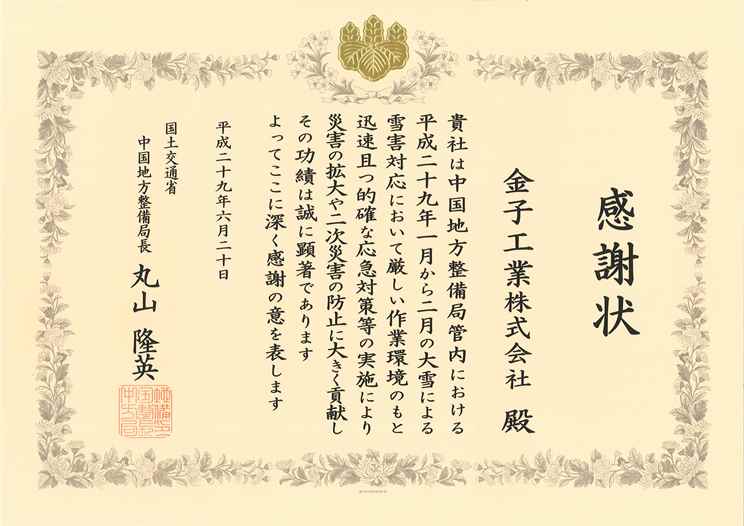 感謝状
金子工業株式会社 殿
貴社は中国地方整備局管内における
平成二十九年一月から二月の大雪による
雪害対応において厳しい作業環境のもと
迅速且つ的確な応急対策等の実施により
災害の拡大や二次災害の防止に大きく貢献し
その功績は誠に顕著であります
よってここに深く感謝の意を表します
平成二十九年六月二十日
国土交通省
中国地方整備局長 丸山 隆英